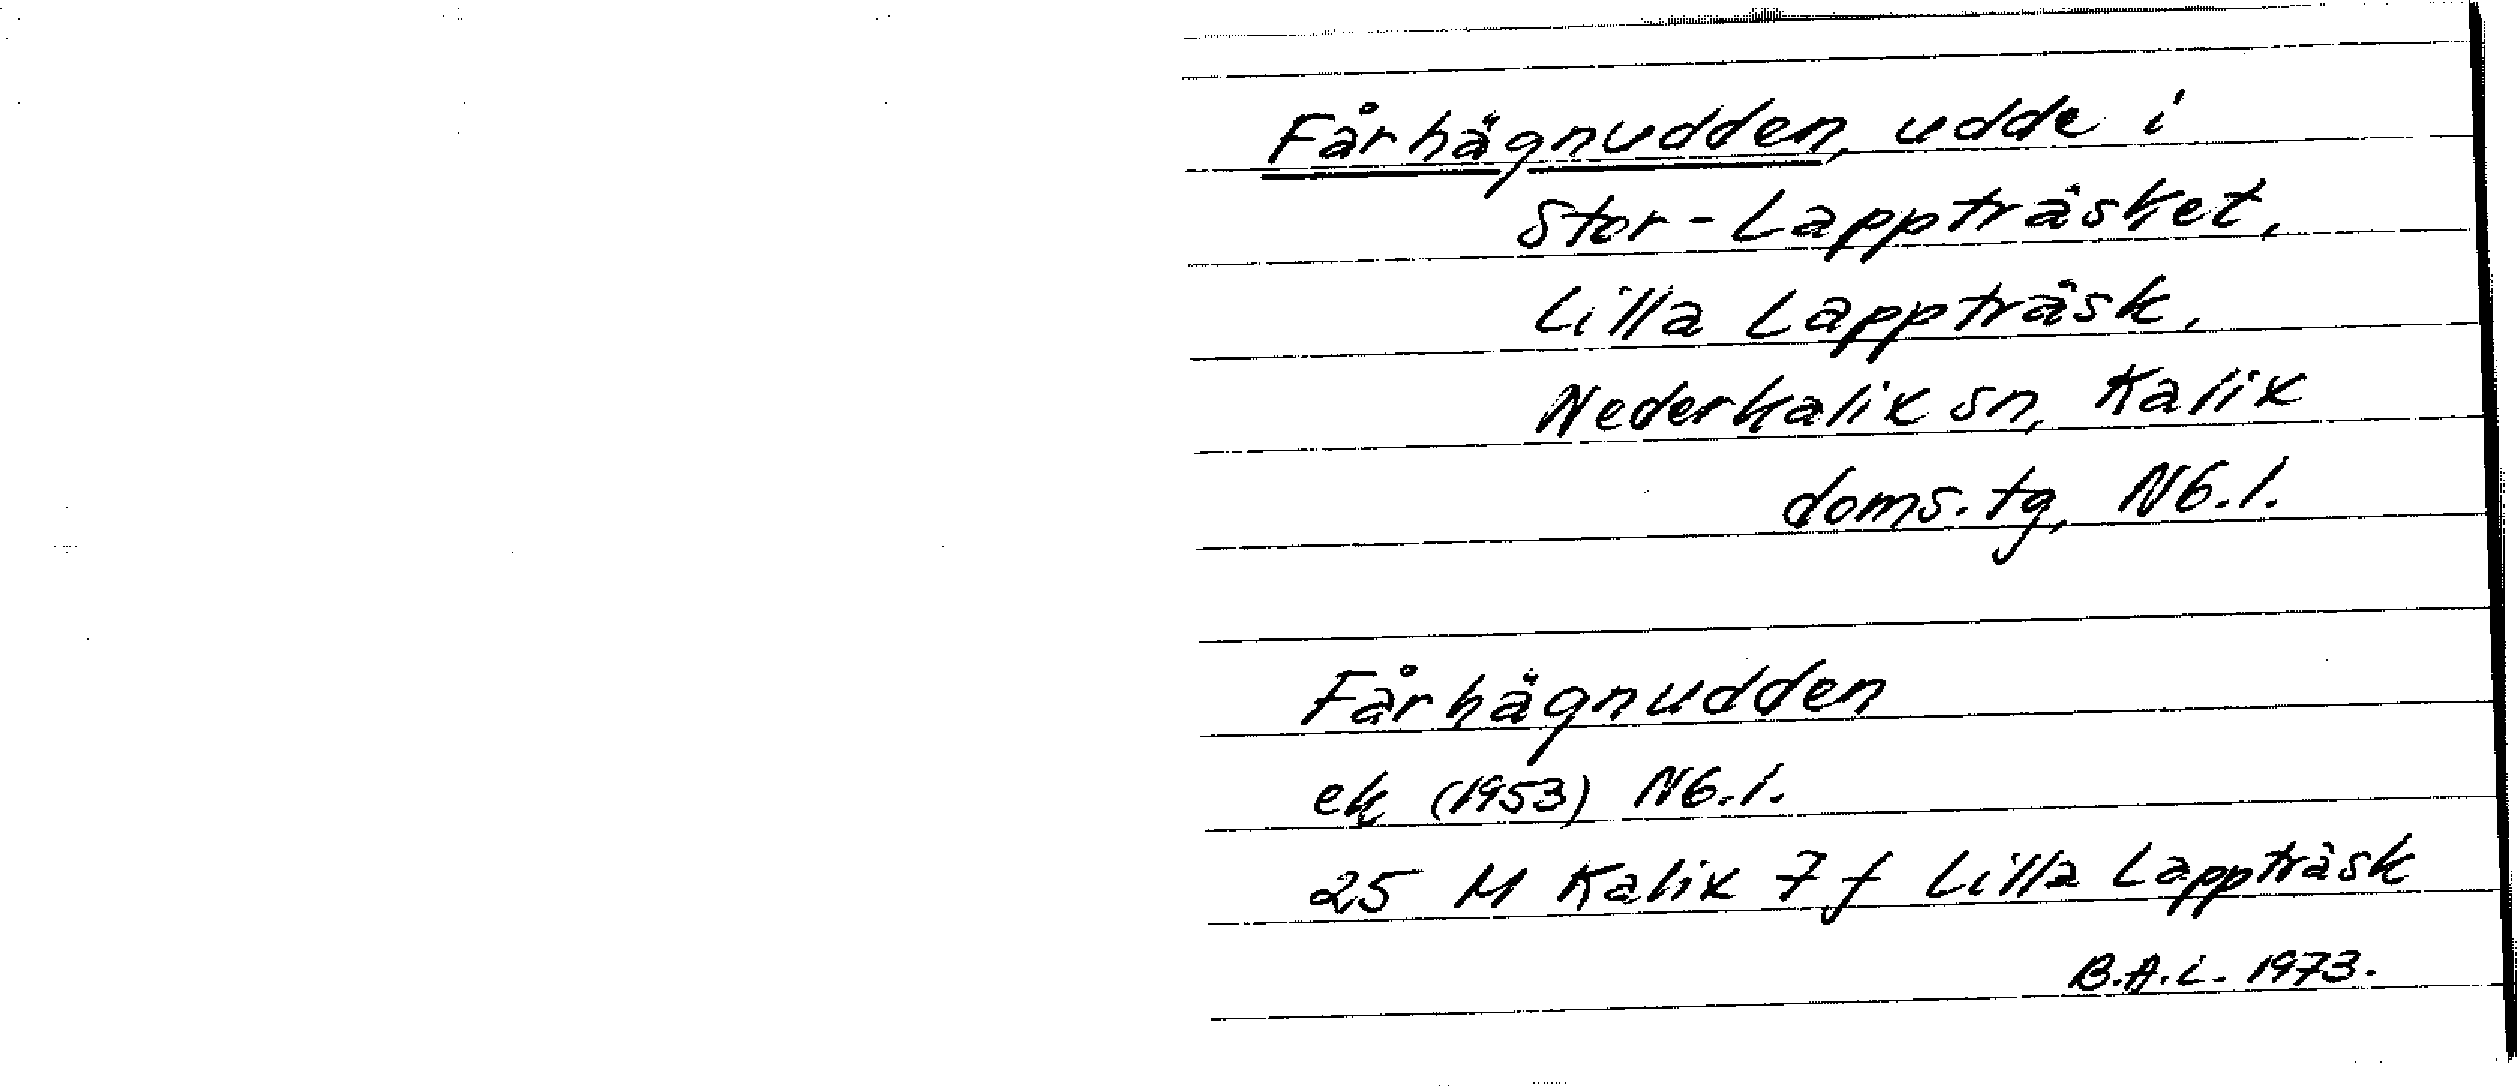 Fårhägnudden, udde i
Stor-Lappträsket,
Lilla Lappträsk,
Nederkalix sn, Kalix
doms.tg, Nb.l.
Fårhägnudden
ek (1953) Nb.l.
25 M Kalix 7 f Lilla Lappträsk
B.A.L. 1973.